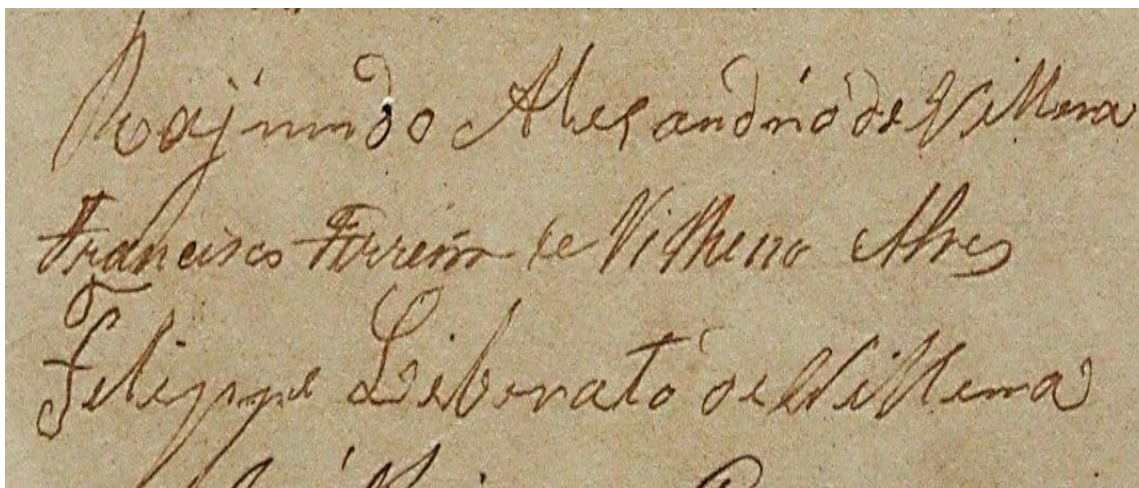 Rajmundo Alexandrio de Vilhena
Francisco Ferreira de Vilhena Alves
Felippe Liberato de Vilhena